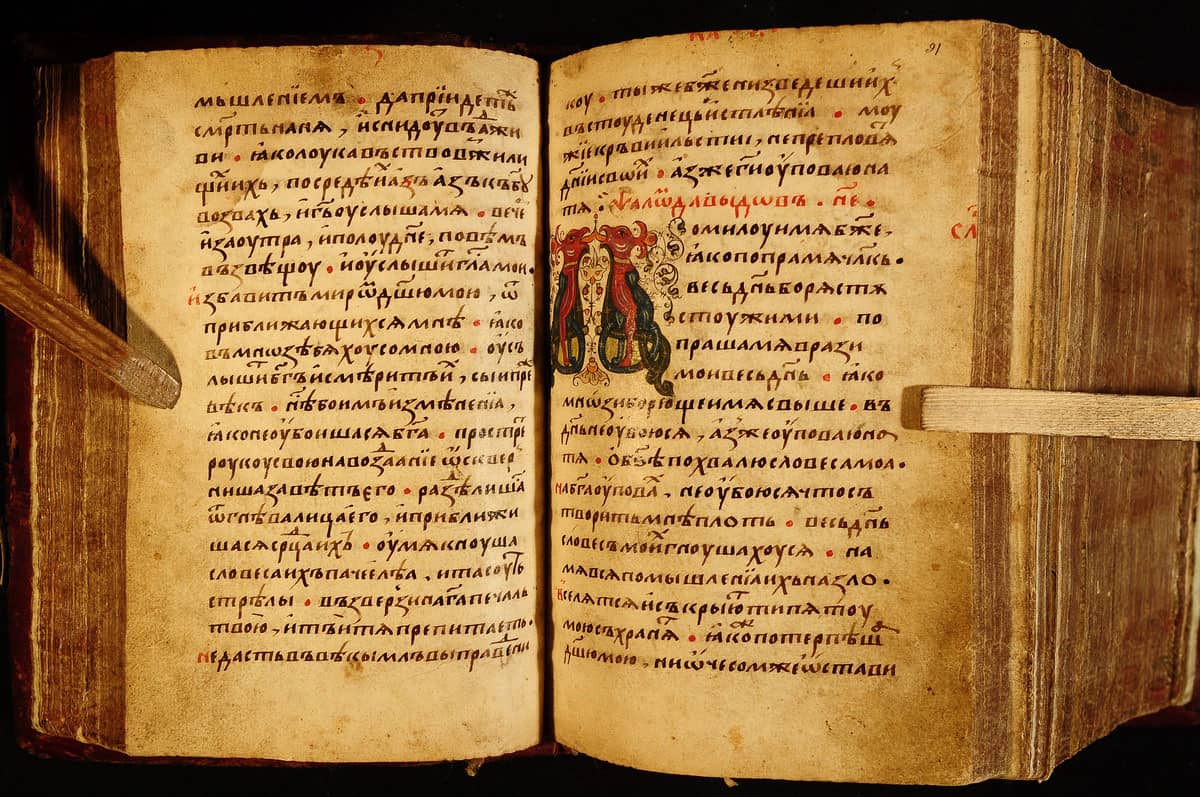 мышленїемъ · да прїидетъ
смр҃ть на ня , и҆ снидоу́ въ а҆д жи
ви · ꙗ҆ко лоукавъство в жили
щи и҆хь , посредѣ и҆ а҆зъ къ б҃оу
возвахь , и҆ г҃ь оуслыша мя · вече
и҆ заоутра , и҆ полоудн҃е , повѣмъ
възвѣщоу · и҆ оу҆слыши гла мои ·
и҆збавитъ миро д҃шю мою , ѿ
приближающихся мнѣ · ꙗ҆ко
въ мноѕѣ бѧхоу со мною · оу҆с
лышит б҃гъ и҆ смѣрит ѧ҆ , сыи пре
вѣкъ · нѣ бо имъ измѣненїа ,
ꙗ҆ко не оу҆боишася б҃га · простре
роукоу свою на воздаанїе ѡ҆скверъ
ниша завѣтъ его · раздѣлиша
ѿ гнѣва лица его , и҆ приближи
шася ср҃ца и҆хъ · оу҆мякноуша
словеса ихъ паче е҆леа , и та соуть
стрѣлы · възверзи на г҃а печаль
твою , и҆ тъ и тя препитаеть ·
не дасть въ вѣкы млъвы праведни
91
коу · ты же б҃же низведеши и҆х
въ стоуденець и҆стлѣнїа · моу
жїе крѣвїи и҆ льсти , не преполовя
д҃нїи свои · а҆зже г҃и оу҆поваю на
тя : ѱало҇ давыдовъ · н҃е ·
Помилоуи мя б҃же ,
ꙗ҆ко попра мя ч҃лкъ ·
весь д҃нь боряся
стоужи ми · по
праша мя врази
мои весь д҃нь · ꙗ҆ко
мноѕи борющеи мя свыше · въ
д҃нь не оу҆боюся , а҆зже оу҆поваю на
тя · о б҃зѣ похвалю словеса моа ·
на б҃га оу҆пова , не оу҆боюся что съ
творить мнѣ плоть · весь д҃нь
словесъ моих гноушахоуся · на
мя вся помышленїа ихъ на зло ·
вселятся и҆ съкрыют ти пятоу
мою съхраня · ꙗ҆ко потерпѣша
д҃шю мою , ни ѡ чесом же ѿстави
сл҃